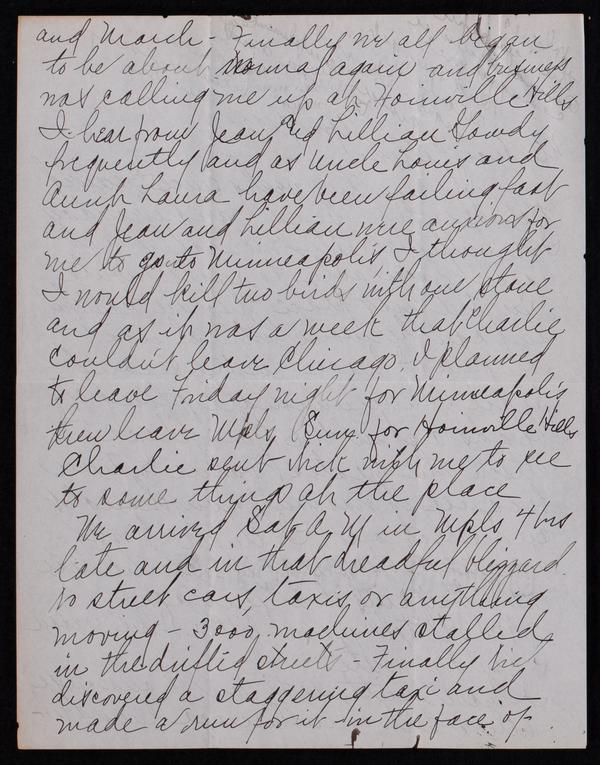 and March - Finally we all began
to be about normal again and business
was calling me up at Hoinville Hills
I hear from Jean and Lillian Gowdy
frequently and as Uncle Louis and
Aunt Laura have been failing fast
and Jean and Lillian were anxious for
me to go to Minneapolis I thought
I would kill two birds with one stone
and as it was a week that Charlie
couldn't leave Chicago, I planned
to leave Friday night for Minneapolis
then leave Mpls Sun. for Hoinville Hills
Charlie sent Nick with me to see
to some things at the place
We arrived Sat A.M in Mpls 4 hrs
late and in that dreadful blizzard.
no street cars, taxis, or anything
moving - 3000 machines stalled
in the drifted streets - Finally Nick
discovered a staggering taxi and
made a run for it - in the face of